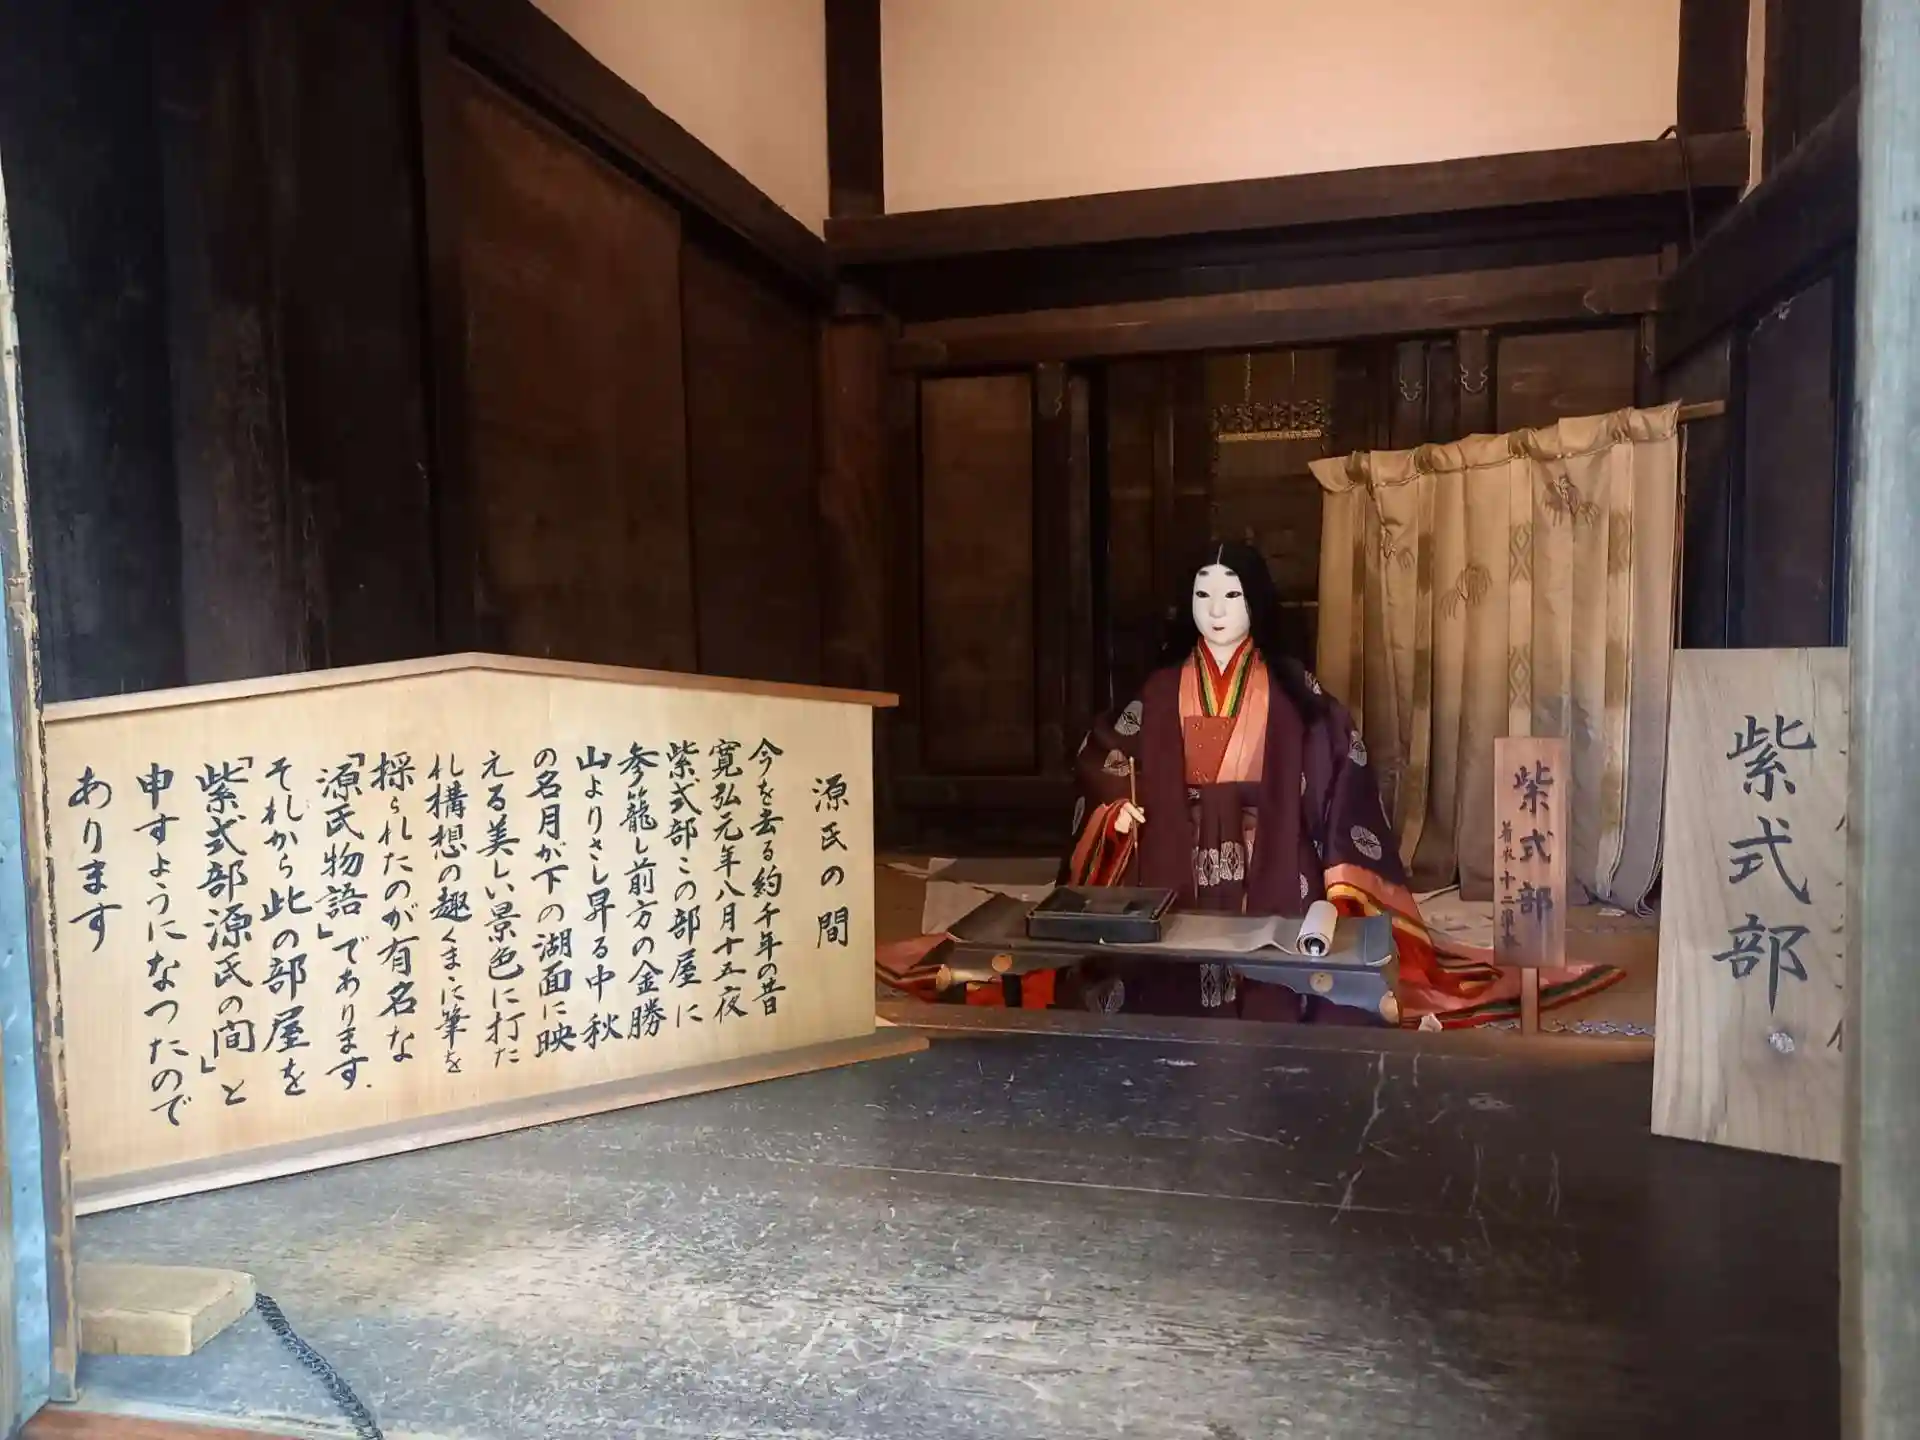 源氏の間
今を去る約千年の昔
寛弘元年八月十五夜
紫式部この部屋に
参籠し前方の金勝
山よりさし昇る中秋
の名月が下の湖面に映
える美しい景色に打た
れ構想の趣くまゝに筆を
採られたのが有名な
「源氏物語」であります.
それから此の部屋を
「紫式部源氏の間」と
申すようになつたので
あります
紫式部
着衣十二單
紫式部